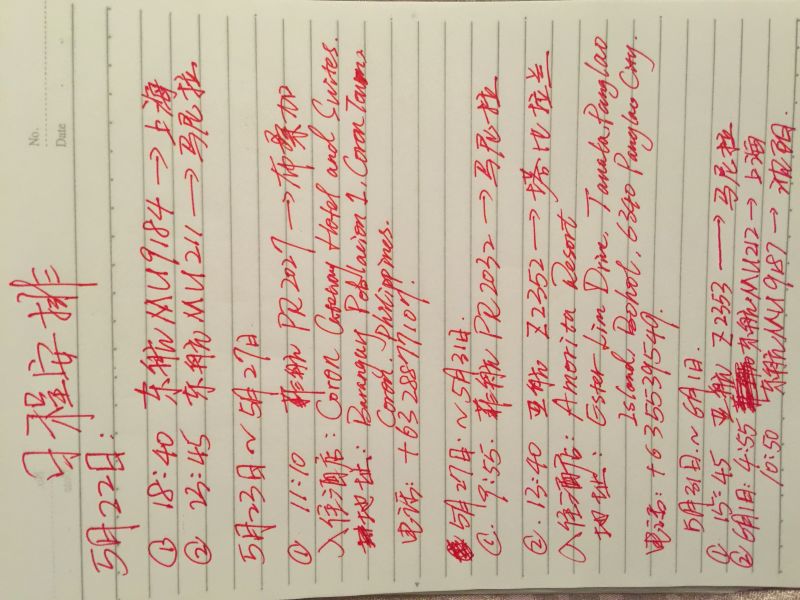 No.
Date
日程安排
5月22日.
① 18:40 东航MU9184→上海
② 23:45 东航MU211→马尼拉
5月23日~5月27日
①. 11:10 菲航PR2027→布桑加
入住酒店: Coron Gateway Hotel and Suites.
地址: Barangay Poblacion 1. Coron Town.
Coron. Philippines.
电话: +63 28877107.
5月27日.~5月31日.
①. 9:55. 菲航PR2032→马尼拉
②. 13:40 亚航 Z2352→塔比拉兰
入住酒店: Amorita Resort
地址: Ester Lim Drive. Tanala Panglao
Island, Bohol, 6340 Panglao City.
电话: +6355391549.
5月31日.~6月1日.
① 15:45 亚航 Z2353→马尼拉
② 6月1日: 4:55 东航MU212→上海
10:50 东航MU9187→